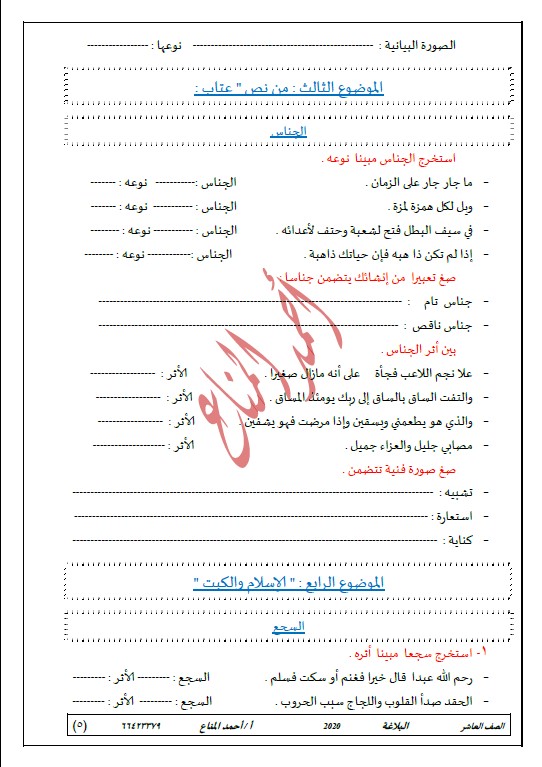 الصورة البيانية : -------------------------------------------------- نوعها : -----------------
الموضوع الثالث : من نص " عتاب :
الجناس
استخرج الجناس مبينا نوعه .
- ما جار جار على الزمان . الجناس :----------- نوعه : -------
- ويل لكل همزة لمزة . الجناس : ----------- نوعه : -------
- في سيف البطل فتح لشعبة وحتف لأعدائه . الجناس : ----------- نوعه : --------
- إذا لم تكن ذا هبه فإن حياتك ذاهبة . الجناس :------------ نوعه : --------
صغ تعبيرا من إنشائك يتضمن جناسا :
- جناس تام : ------------------------------------------------------------
- جناس ناقص : ------------------------------------------------------------
بين أثر الجناس .
- علا نجم اللاعب فجأة على أنه مازال صغيرا . الأثر : ------------------
- والتفت الساق بالساق إلى ربك يومئذ المساق . الأثر : ------------------
- والذي هو يطعمني ويسقين وإذا مرضت فهو يشفين . الأثر : ------------------
- مصابي جليل والعزاء جميل . الأثر : --------------------
صغ صورة فنية تتضمن .
- تشبيه : ------------------------------------------------------------
- استعارة : ------------------------------------------------------------
- كناية : ------------------------------------------------------------
الموضوع الرابع : " الإسلام والكبت "
السجع
١- استخرج سجعا مبينا أثره .
- رحم الله عبدا قال خيرا فغنم أو سكت فسلم . السجع : --------- الأثر : ---------
- الحقد صدأ القلوب واللجاج سبب الحروب . السجع : --------- الأثر : ---------
الصف العاشر البلاغة 2020 أ / أحمد المناع ٦٦٤٢٣٣٧٩ (٥)
أحمد المناع